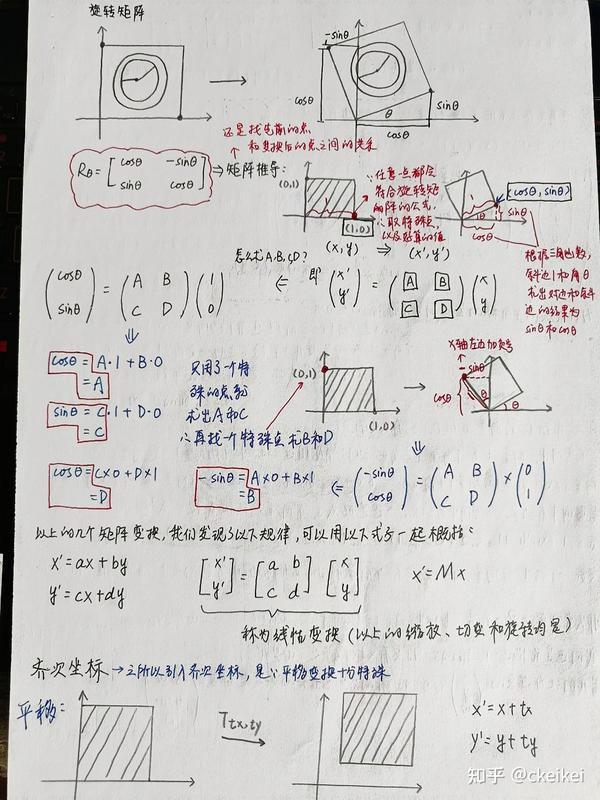 旋转矩阵
-sinθ
cosθ
sinθ
θ
cosθ
还是找先前的点
和变换后的点之间的关系
Rθ = [cosθ -sinθ
sinθ cosθ]
⇒矩阵推导:
(0,1)
(1,0)
∵任意一点都会
符合旋转矩
阵的公式,
∴取特殊点,
以及贴真的值
(cosθ, sinθ)
1
θ
sinθ
cosθ
(x, y) ⇒ (x', y')
根据三角函数,
斜边1和角θ
求出对边和斜
边的结果为
sinθ和cosθ
怎么求A,B,C,D?
(cosθ
sinθ) = (A B
C D) (1
0)
⇐ 即 (x'
y') = (A B
C D) (x
y)
⇓
cosθ = A·1 + B·0
= A
sinθ = C·1 + D·0
= C
只用了一个特
殊的点就
求出A和C
∴再找一个特殊点求B和D
(0,1)
(1,0)
→
X轴左边加负号
-sinθ
cosθ
θ
θ
⇓
cosθ = C×0 + D×1
= D
-sinθ = A×0 + B×1
= B
⇐ (-sinθ
cosθ) = (A B
C D) × (0
1)
以上的几个矩阵变换,我们发现了以下规律,可以用以下式子一起概括:
x' = ax + by
y' = cx + dy
[x'
y'] = [a b
c d] [x
y]
x' = Mx
称为线性变换(以上的缩放、切变和旋转均是)
齐次坐标→之所以引入齐次坐标,是∵平移变换十分特殊
平移:
Ttx,ty
x' = x + tx
y' = y + ty
知乎 @ckeikei